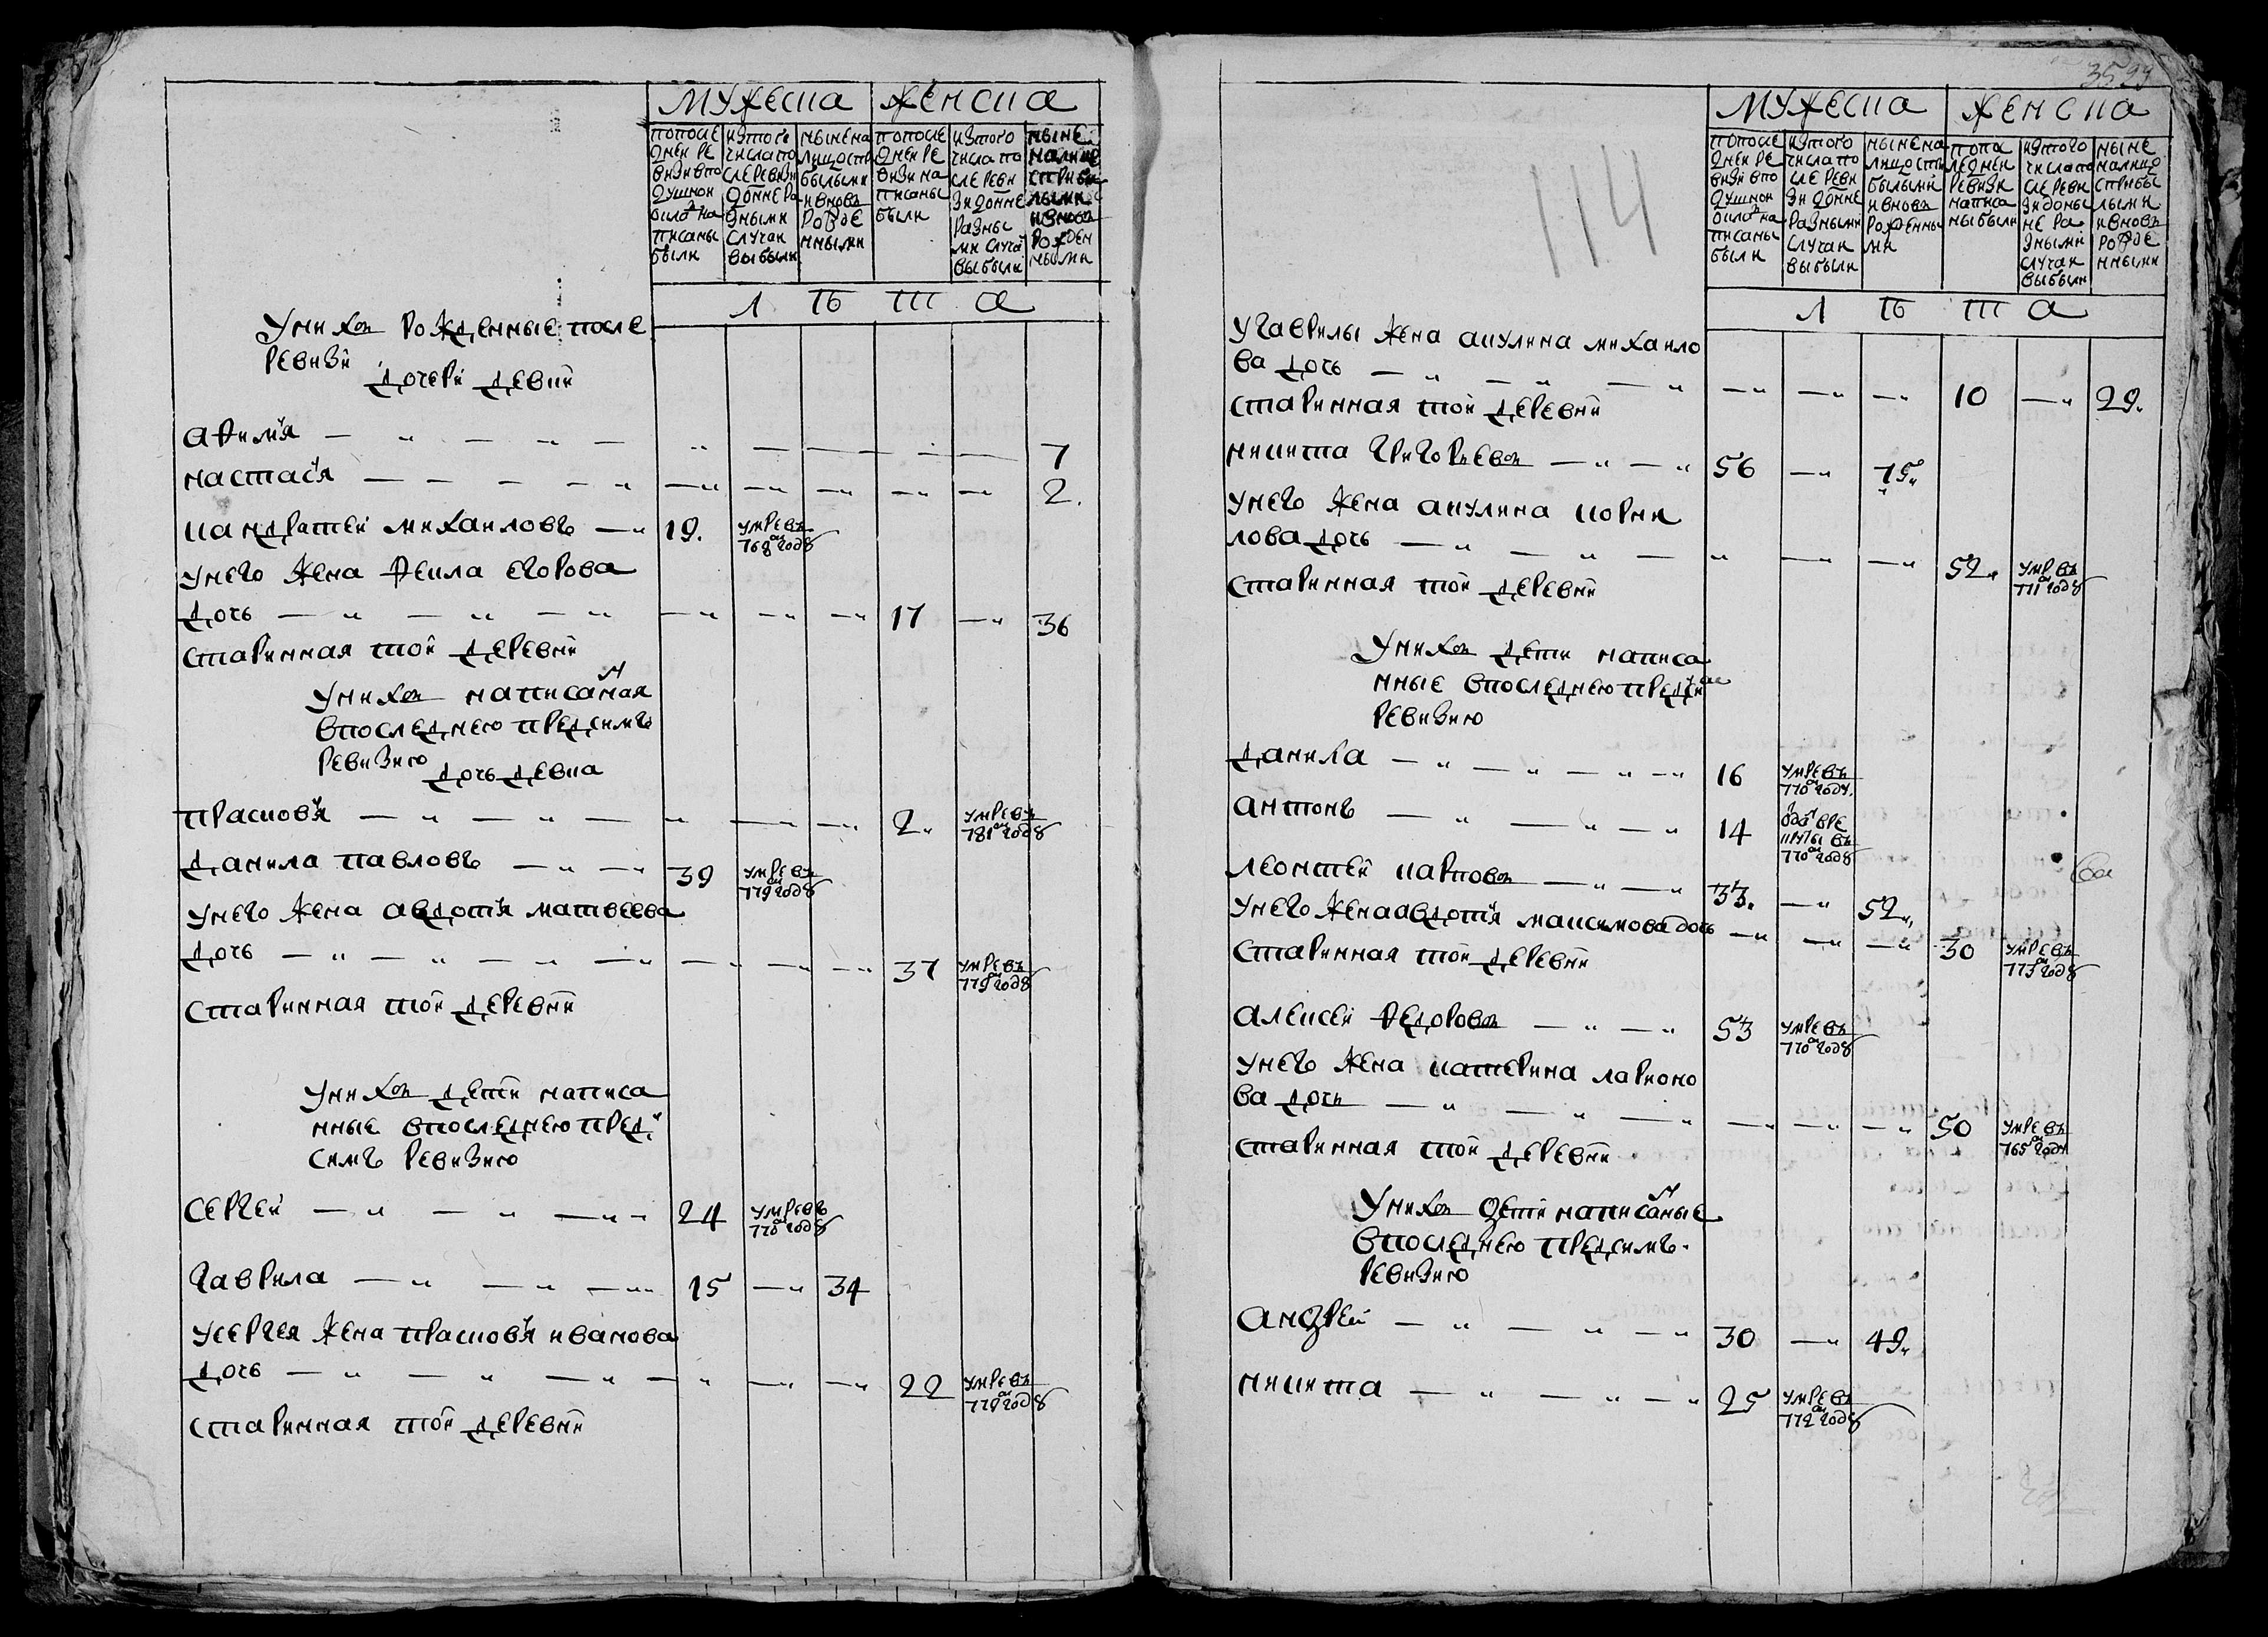 мужеска женска
попосле
дней ре
визи впо
душнои
окла на
писаны
были
изтого
числа по
сле ревизи
доннѣ ра
зными
случаи
выбыли
нынѣ на
лицо спри
былыми
и вновь
рожде
нными
попосле
дней ре
визи на
писаны
были
изтого
числа по
сле реви
зи донне
разны
ми случа
выбыли
ныне
налице
с прибы
лыми
и вновь
рожден
ными
л ѣ т а
у них рожденные после
ревизи
дочери девки
афимья 7
настасья 2.
кандратей михаиловъ 19. умре въ
768 году
у него жена фекла егорова
дочь 17 36
старинная той деревни
у них написанная
в последнею пред симъ
ревизию
дочь девка
прасковья 2. умре въ
781 году
данила павловъ 39 умре въ
779 году
у него жена авдотья матвеева
дочь 37 умре въ
779 году
старинная той деревни
у них дети написа
нные в последнею пред
симъ ревизию
сергей 24 умре въ
770 году
гаврила 15 34
у сергея жена прасковья иванова
дочь 22 умре въ
778 году
старинная той деревни
114
мужеска женска
попосле
дней ре
визи впо
душнои
окла на
писаны
были
изтого
числа по
сле реви
зи донне
разными
случаи
выбыли
ныне на
лицо спри
былыми
и вновь
рожденны
ми
попо
следней
ревизи
написа
ны были
изтого
числа по
сле реви
зи доны
не ра
зными
случаи
выбыли
ныне
налицо
с прибы
лыми
и вновь
рожде
нными
л ѣ т а
у гаврилы жена акулина михаило
ва дочь 10 29.
старинная той деревни
никита григорьевъ 56 75.
у него жена акулина корни
лова дочь 52. умре въ
771 году
старинная той деревни
у них дети написа
нные в последнею пред сим
ревизию
данила 16 умре въ
770 году
антонъ 14 одат в ре
круты въ
770 году
леонтей карповъ 33. 52.
у него жена авдотья максимова дочь 30 умре въ
773 году
старинная той деревни
алексей федоровъ 53 умре въ
770 году
у него жена катерина ларионо
ва дочь 50 умре въ
765 году
старинная той деревни
у них дети написаные
в последнею пред симъ
ревизию
андрей 30 49.
никита 25 умре въ
772 году